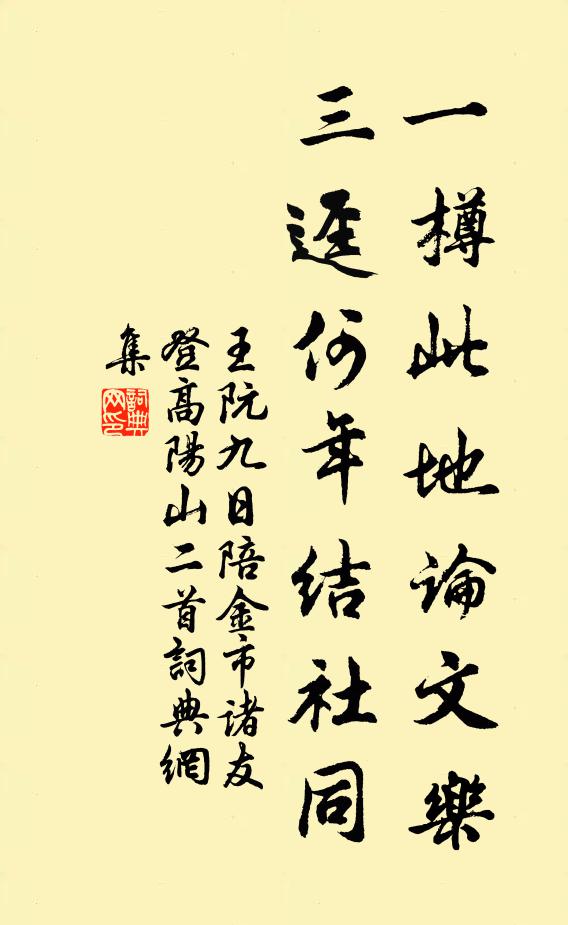 一樽此地論文樂
三逕何年結社同
王阮九日陪金市諸友
登高陽山二首詞典網
集
詞典網印